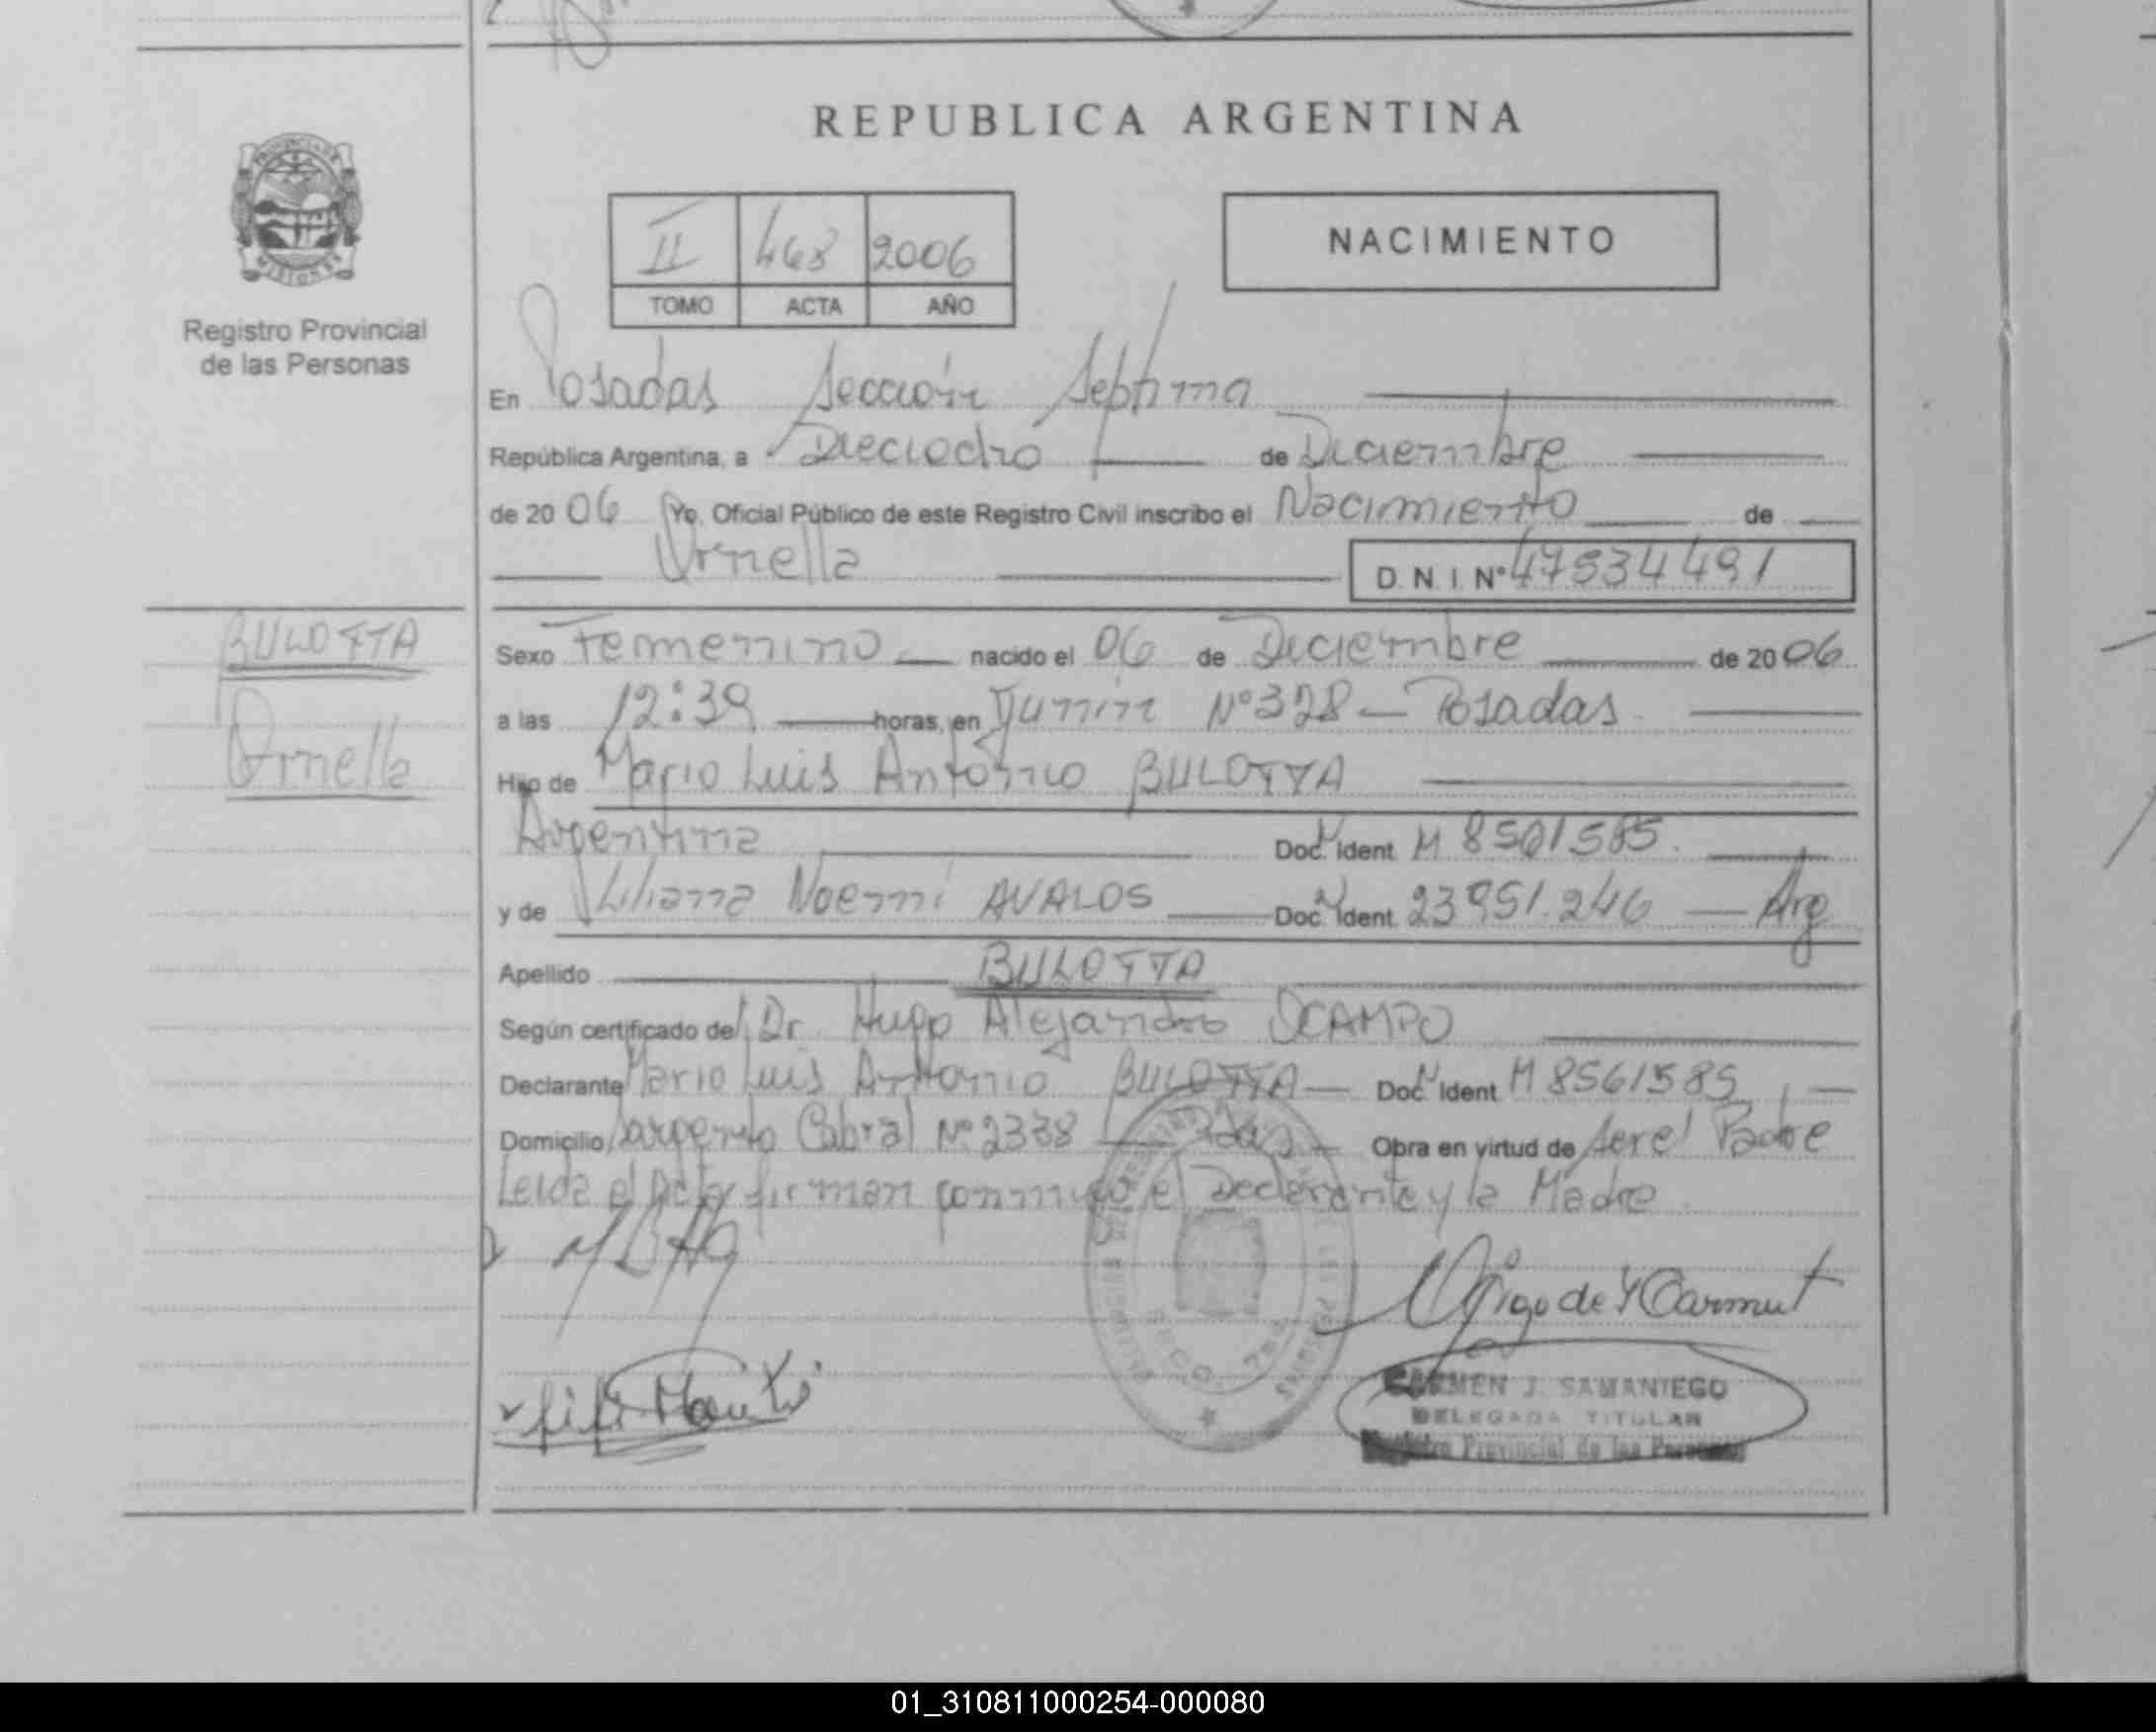 REPUBLICA ARGENTINA
II 468 2006
TOMO ACTA AÑO
NACIMIENTO
PROVINCIA DE
MISIONES
Registro Provincial
de las Personas
En Posadas Sección Septima
República Argentina, a Dieciocho de Diciembre
de 2006 Yo, Oficial Público de este Registro Civil inscribo el Nacimiento de
Ornella D. N. I. Nº 47534491
BULOTTA
Ornella
Sexo Femenino nacido el 06 de Diciembre de 2006
a las 12:39 horas, en Junín Nº 328 - Posadas
Hijo de Mario Luis Antonio BULOTTA
Argentina Doc. Ident. M 8561585.
y de Liliana Noemí AVALOS Doc. Ident. 23951.246 - Arg
Apellido BULOTTA
Según certificado del Dr. Hugo Alejandro OCAMPO
Declarante Mario Luis Antonio BULOTTA - Doc. Ident. M 8561585
Domicilio Sargento Cabral Nº 2338 Pdas - Obra en virtud de ser el Padre
Leida el Acta firman conmigo el Declarante y la Madre
CARMEN J. SAMANIEGO
DELEGADA TITULAR
Registro Provincial de las Personas
01_310811000254-000080